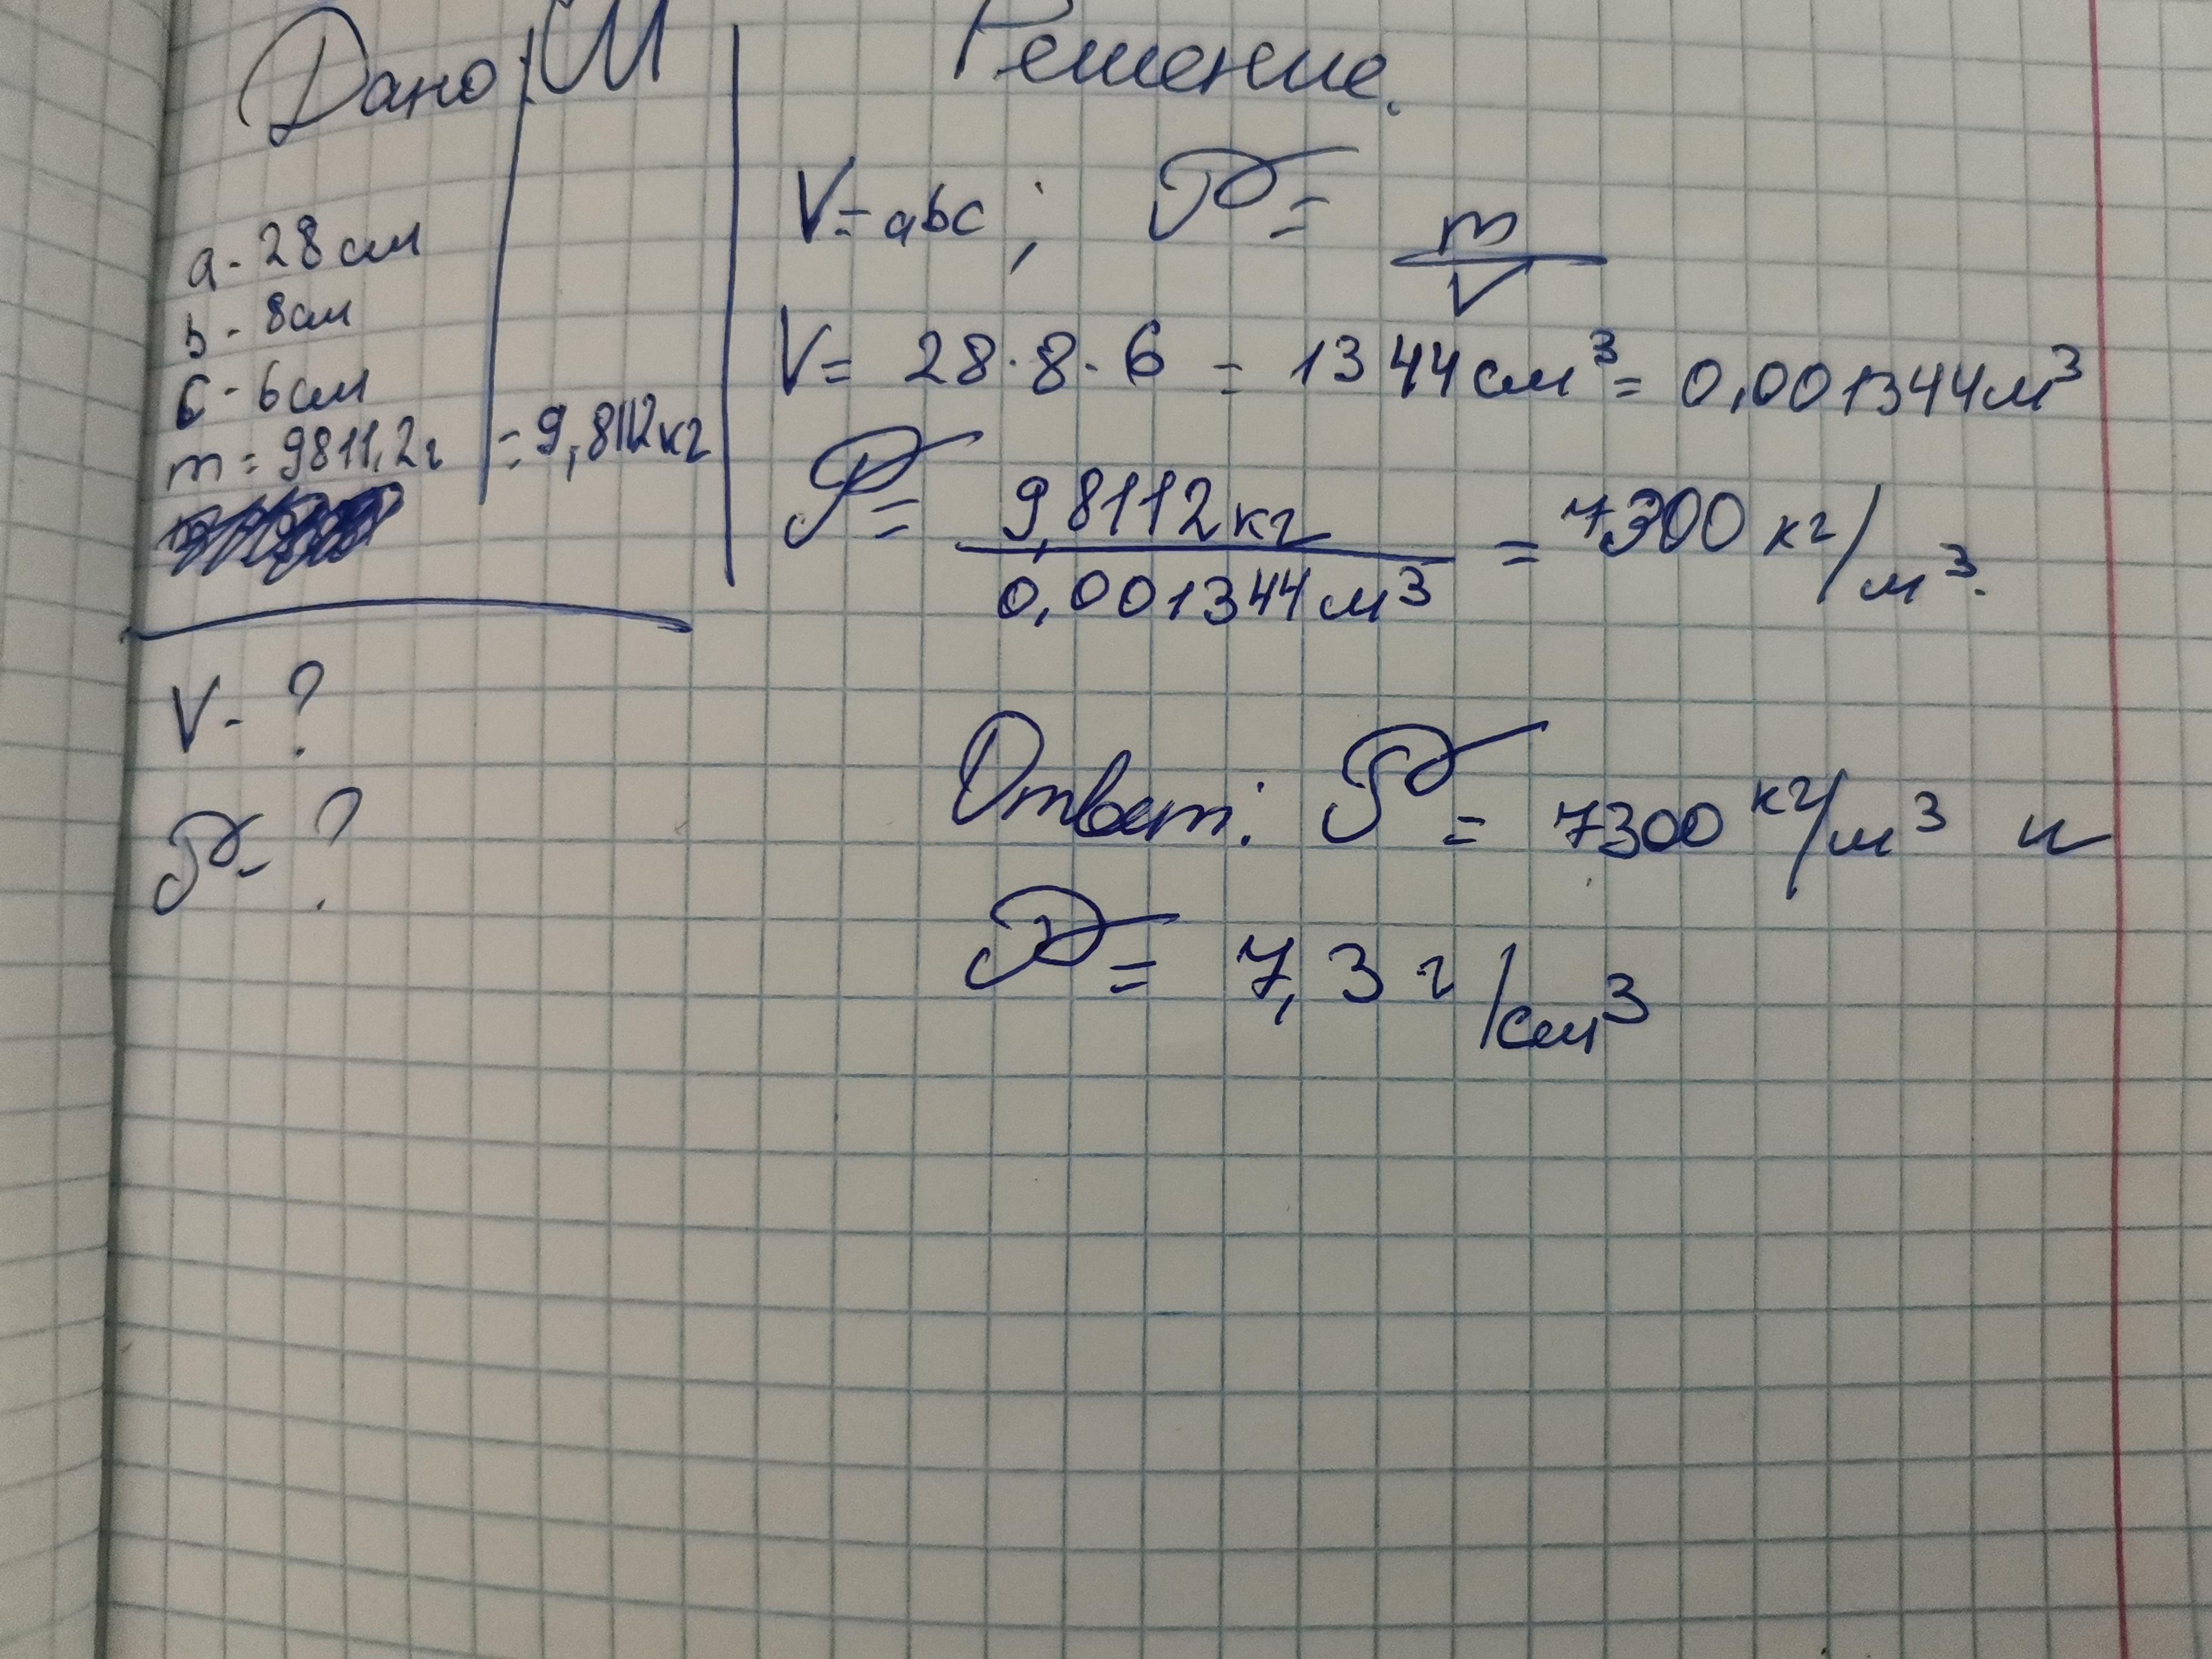 Дано: СИ
a - 28 см
b - 8 см
c - 6 см
m = 9811,2 г = 9,8112 кг
V - ?
ρ - ?
Решение.
V = abc ; ρ = m/V
V = 28 · 8 · 6 = 1344 см³ = 0,001344 м³
ρ = 9,8112 кг / 0,001344 м³ = 7300 кг/м³.
Ответ: ρ = 7300 кг/м³ и
ρ = 7,3 г/см³